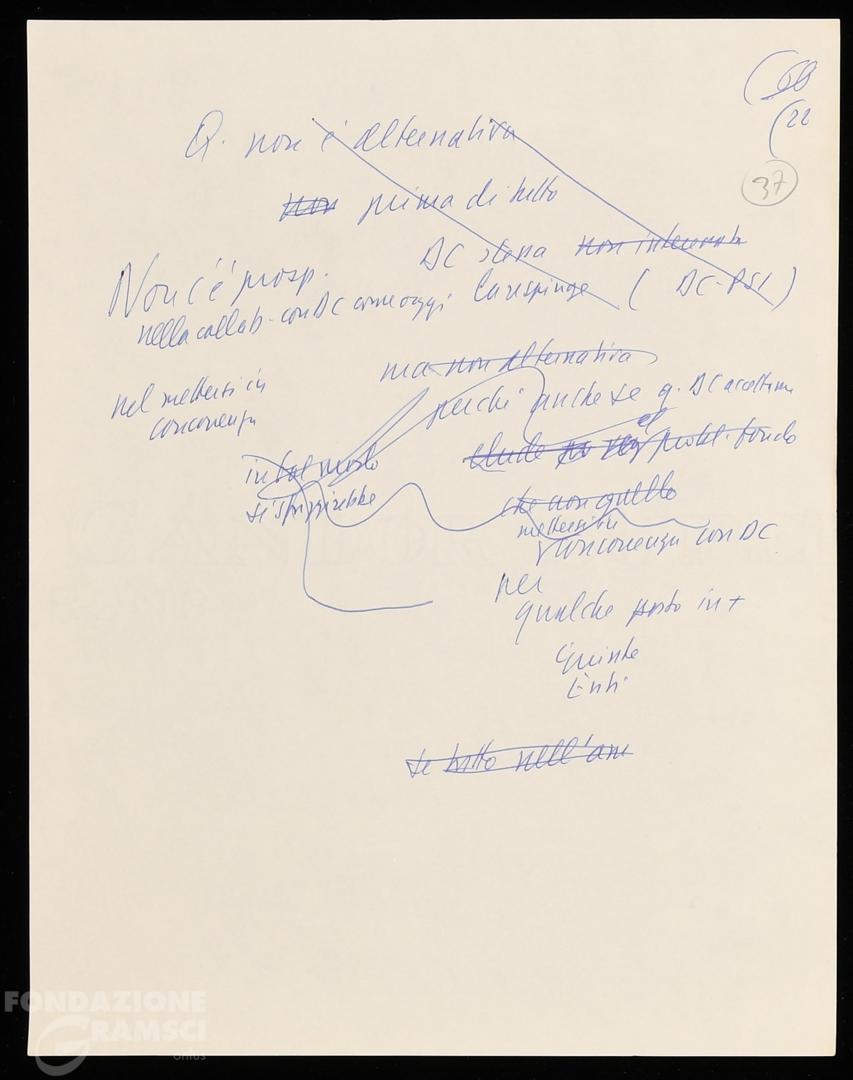 (68
(22
37
Q. non è alternativa
non prima di tutto
DC stessa non interessata
la respinge ( DC-PSI )
Non c'è prosp.
nella collab. con DC come oggi
ma non alternativa
nel mettersi in
concorrenza
perché anche se q. DC accettasse
in tal modo
elude probl. fondo
che non quello
mettersi in
concorrenza con DC
per
qualche posto in +
Giunte
Enti
se tutto nell'am
FONDAZIONE
GRAMSCI
onlus